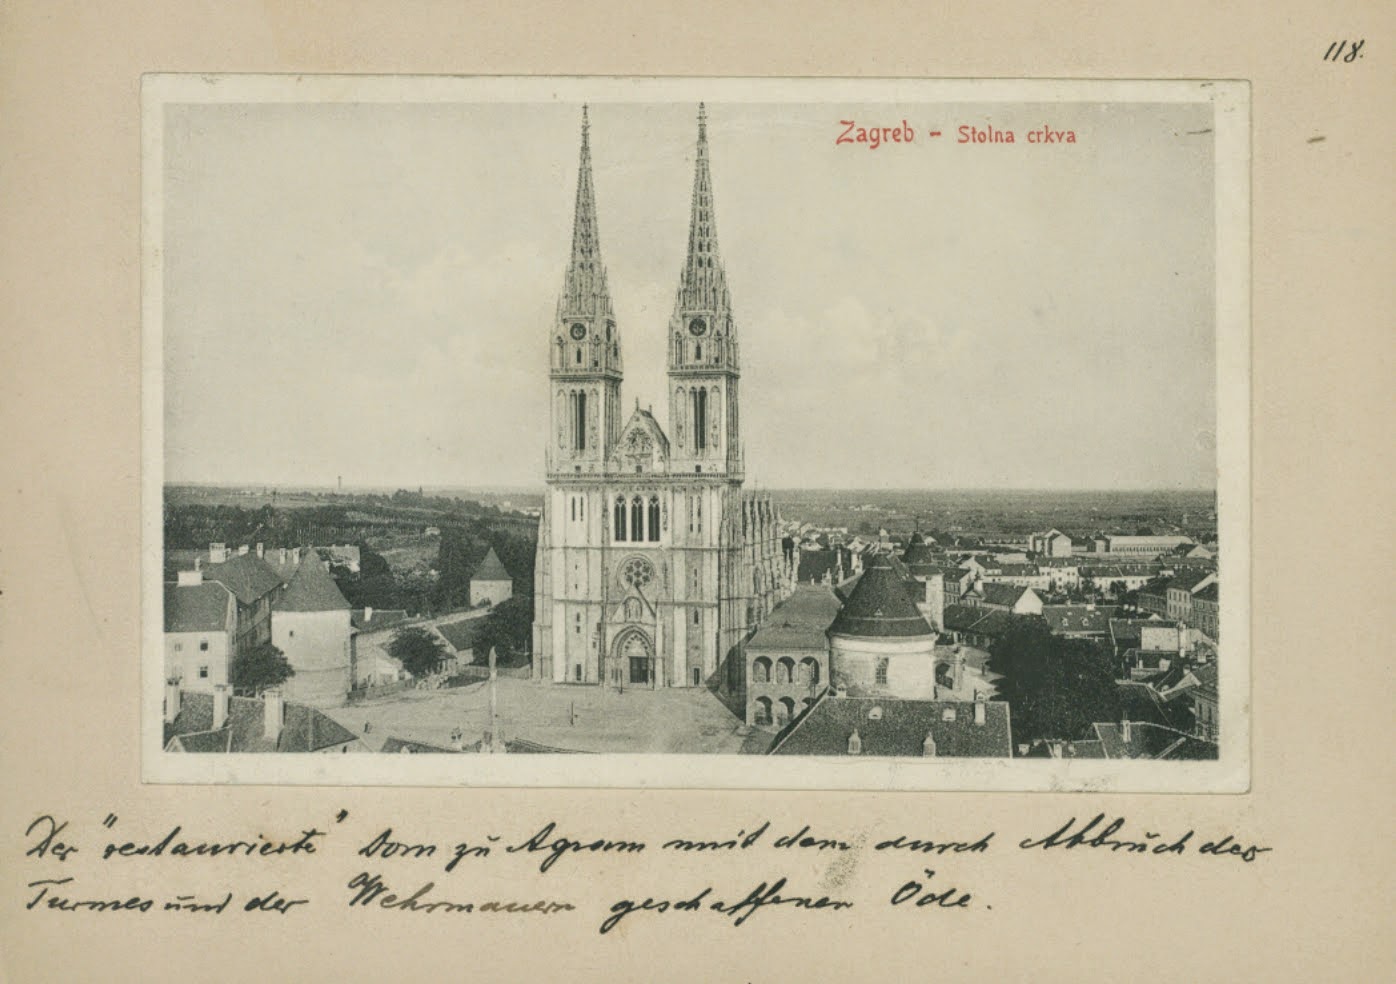 118.
Zagreb - Stolna crkva
Der "restaurierte" Dom zu Agram mit dem durch Abbruch des
Turmes und der Wehrmauern geschaffenen Öde.